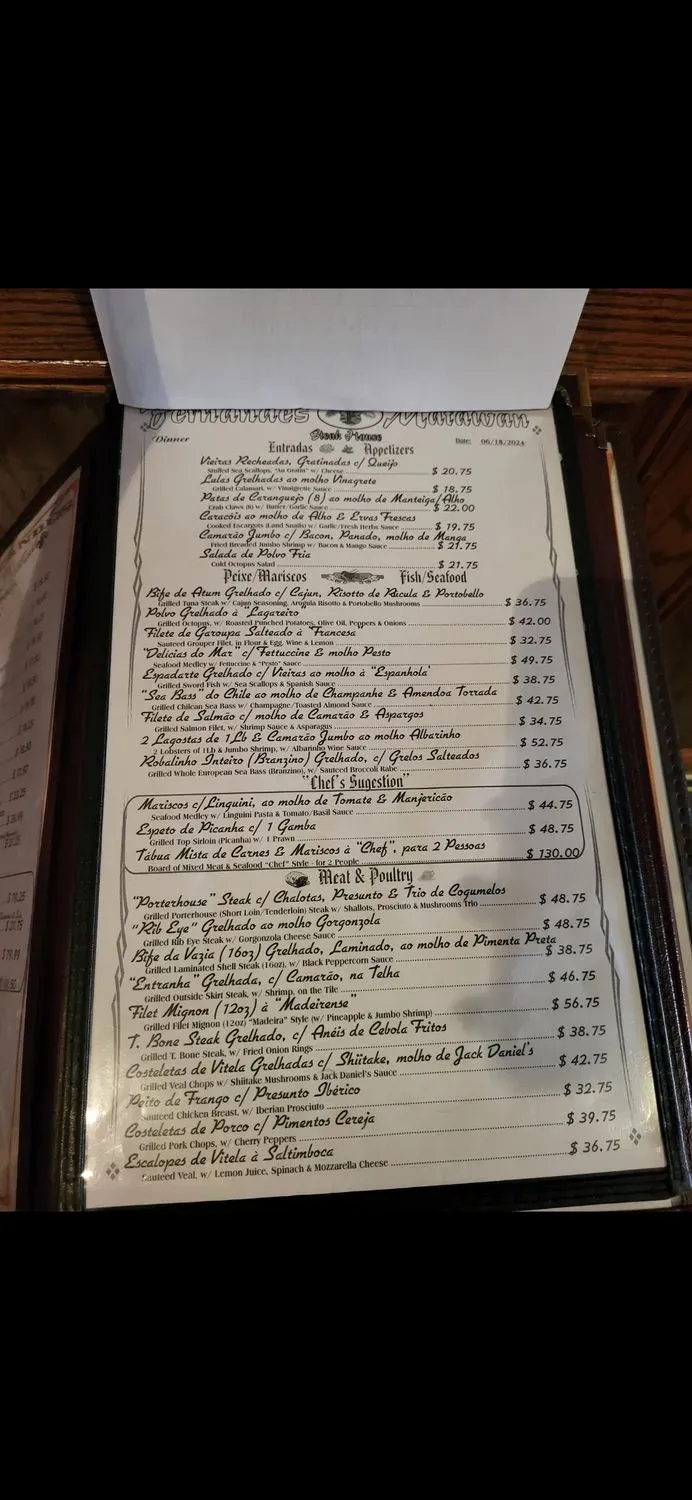 Fernandes Matawan
Steak House
Dinner
Date: 06/18/2024
Entradas Appetizers
Vieiras Recheadas, Gratinadas c/ Queijo
Stuffed Sea Scallops, "Au Gratin" w/ Cheese $ 20.75
Lulas Grelhadas ao molho Vinagrete
Grilled Calamari, w/ Vinaigrette Sauce $ 18.75
Patas de Caranguejo (8) ao molho de Manteiga/Alho
Crab Claws (8) w/ Butter/Garlic Sauce $ 22.00
Caracóis ao molho de Alho & Ervas Frescas
Cooked Escargots (Land Snails) w/ Garlic/Fresh Herbs Sauce $ 19.75
Camarão Jumbo c/ Bacon, Panado, molho de Manga
Fried Breaded Jumbo Shrimp w/ Bacon & Mango Sauce $ 21.75
Salada de Polvo Fria
Cold Octopus Salad $ 21.75
Peixe/Mariscos Fish/Seafood
Bife de Atum Grelhado c/ Cajun, Risotto de Rúcula & Portobello
Grilled Tuna Steak w/ Cajun Seasoning, Arugula Risotto & Portobello Mushrooms $ 36.75
Polvo Grelhado à "Lagareiro
Grilled Octopus, w/ Roasted Punched Potatoes, Olive Oil, Peppers & Onions $ 42.00
Filete de Garoupa Salteado à "Francesa
Sauteed Grouper Filet, in Flour & Egg, Wine & Lemon $ 32.75
"Delicias do Mar" c/ Fettuccine & molho Pesto
Seafood Medley w/ Fettucine & "Pesto" Sauce $ 49.75
Espadarte Grelhado c/ Vieiras ao molho à "Espanhola'
Grilled Sword Fish w/ Sea Scallops & Spanish Sauce $ 38.75
"Sea Bass" do Chile ao molho de Champanhe & Amendoa Torrada
Grilled Chilean Sea Bass w/ Champagne/Toasted Almond Sauce $ 42.75
Filete de Salmão c/ molho de Camarão & Aspargos
Grilled Salmon Filet, w/ Shrimp Sauce & Asparagus $ 34.75
2 Lagostas de 1Lb & Camarão Jumbo ao molho Albarinho
2 Lobsters of 1Lb & Jumbo Shrimp, w/ Albarinho Wine Sauce $ 52.75
Robalinho Inteiro (Branzino) Grelhado, c/ Grelos Salteados
Grilled Whole European Sea Bass (Branzino), w/ Sauteed Broccoli Rabe $ 36.75
"Chef's Sugestion"
Mariscos c/Linguini, ao molho de Tomate & Manjericão
Seafood Medley w/ Linguini Pasta & Tomato/Basil Sauce $ 44.75
Espeto de Picanha c/ 1 Gamba
Grilled Top Sirloin (Picanha) w/ 1 Prawn $ 48.75
Tábua Mista de Carnes & Mariscos à "Chef", para 2 Pessoas
Board of Mixed Meat & Seafood "Chef" Style - for 2 People $ 130.00
Meat & Poultry
"Porterhouse" Steak c/ Chalotas, Presunto & Trio de Cogumelos
Grilled Porterhouse (Short Loin/Tenderloin) Steak w/ Shallots, Prosciuto & Mushrooms Trio $ 48.75
"Rib Eye" Grelhado ao molho Gorgonzola
Grilled Rib Eye Steak w/ Gorgonzola Cheese Sauce $ 48.75
Bife da Vazia (16oz) Grelhado, Laminado, ao molho de Pimenta Preta
Grilled Laminated Shell Steak (16oz), w/ Black Peppercorn Sauce $ 38.75
"Entranha" Grelhada, c/ Camarão, na Telha
Grilled Outside Skirt Steak, w/ Shrimp, on the Tile $ 46.75
Filet Mignon (12oz) à "Madeirense"
Grilled Filet Mignon (12oz) "Madeira" Style (w/ Pineapple & Jumbo Shrimp) $ 56.75
T. Bone Steak Grelhado, c/ Anéis de Cebola Fritos
Grilled T. Bone Steak, w/ Fried Onion Rings $ 38.75
Costeletas de Vitela Grelhadas c/ Shiitake, molho de Jack Daniel's
Grilled Veal Chops w/ Shiitake Mushrooms & Jack Daniel's Sauce $ 42.75
Peito de Frango c/ Presunto Ibérico
Sauteed Chicken Breast, w/ Iberian Prosciuto $ 32.75
Costeletas de Porco c/ Pimentos Cereja
Grilled Pork Chops, w/ Cherry Peppers $ 39.75
Escalopes de Vitela à Saltimboca
Sauteed Veal, w/ Lemon Juice, Spinach & Mozzarella Cheese $ 36.75